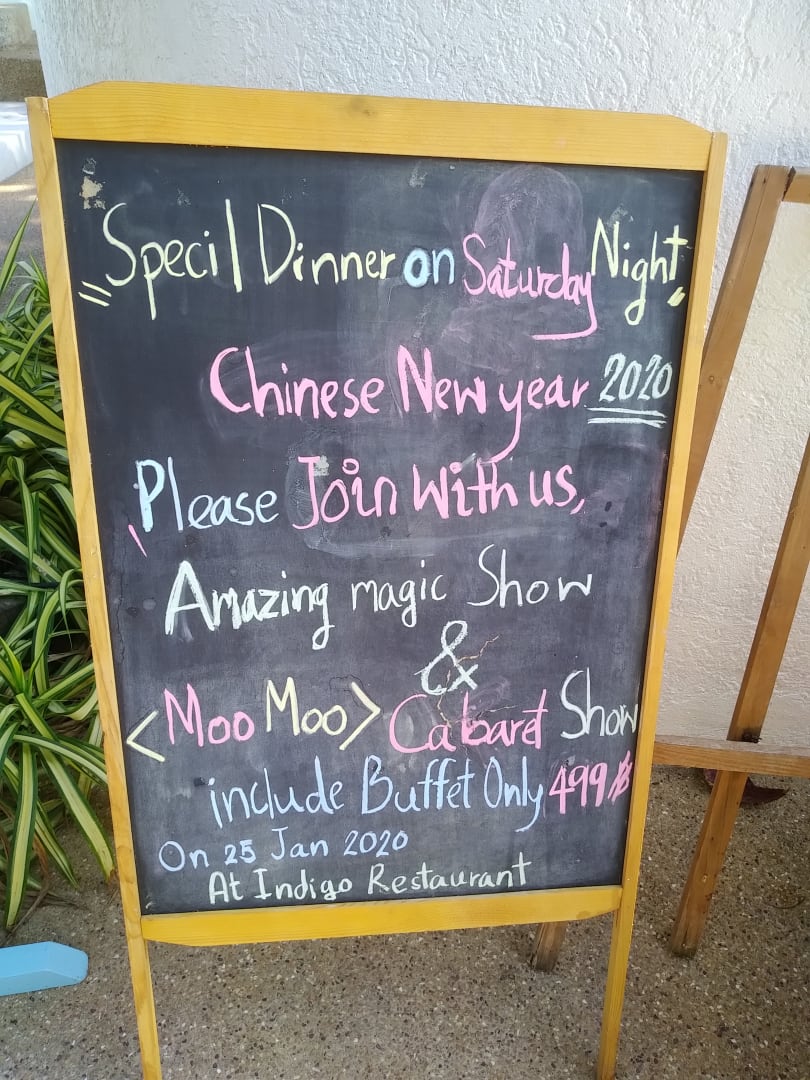 "Specil Dinner on Saturday Night"
Chinese New year 2020
"Please Join With us,
Amazing magic Show
&
<Moo Moo> Cabaret Show
include Buffet Only 499 ฿
On 25 Jan 2020
At Indigo Restaurant